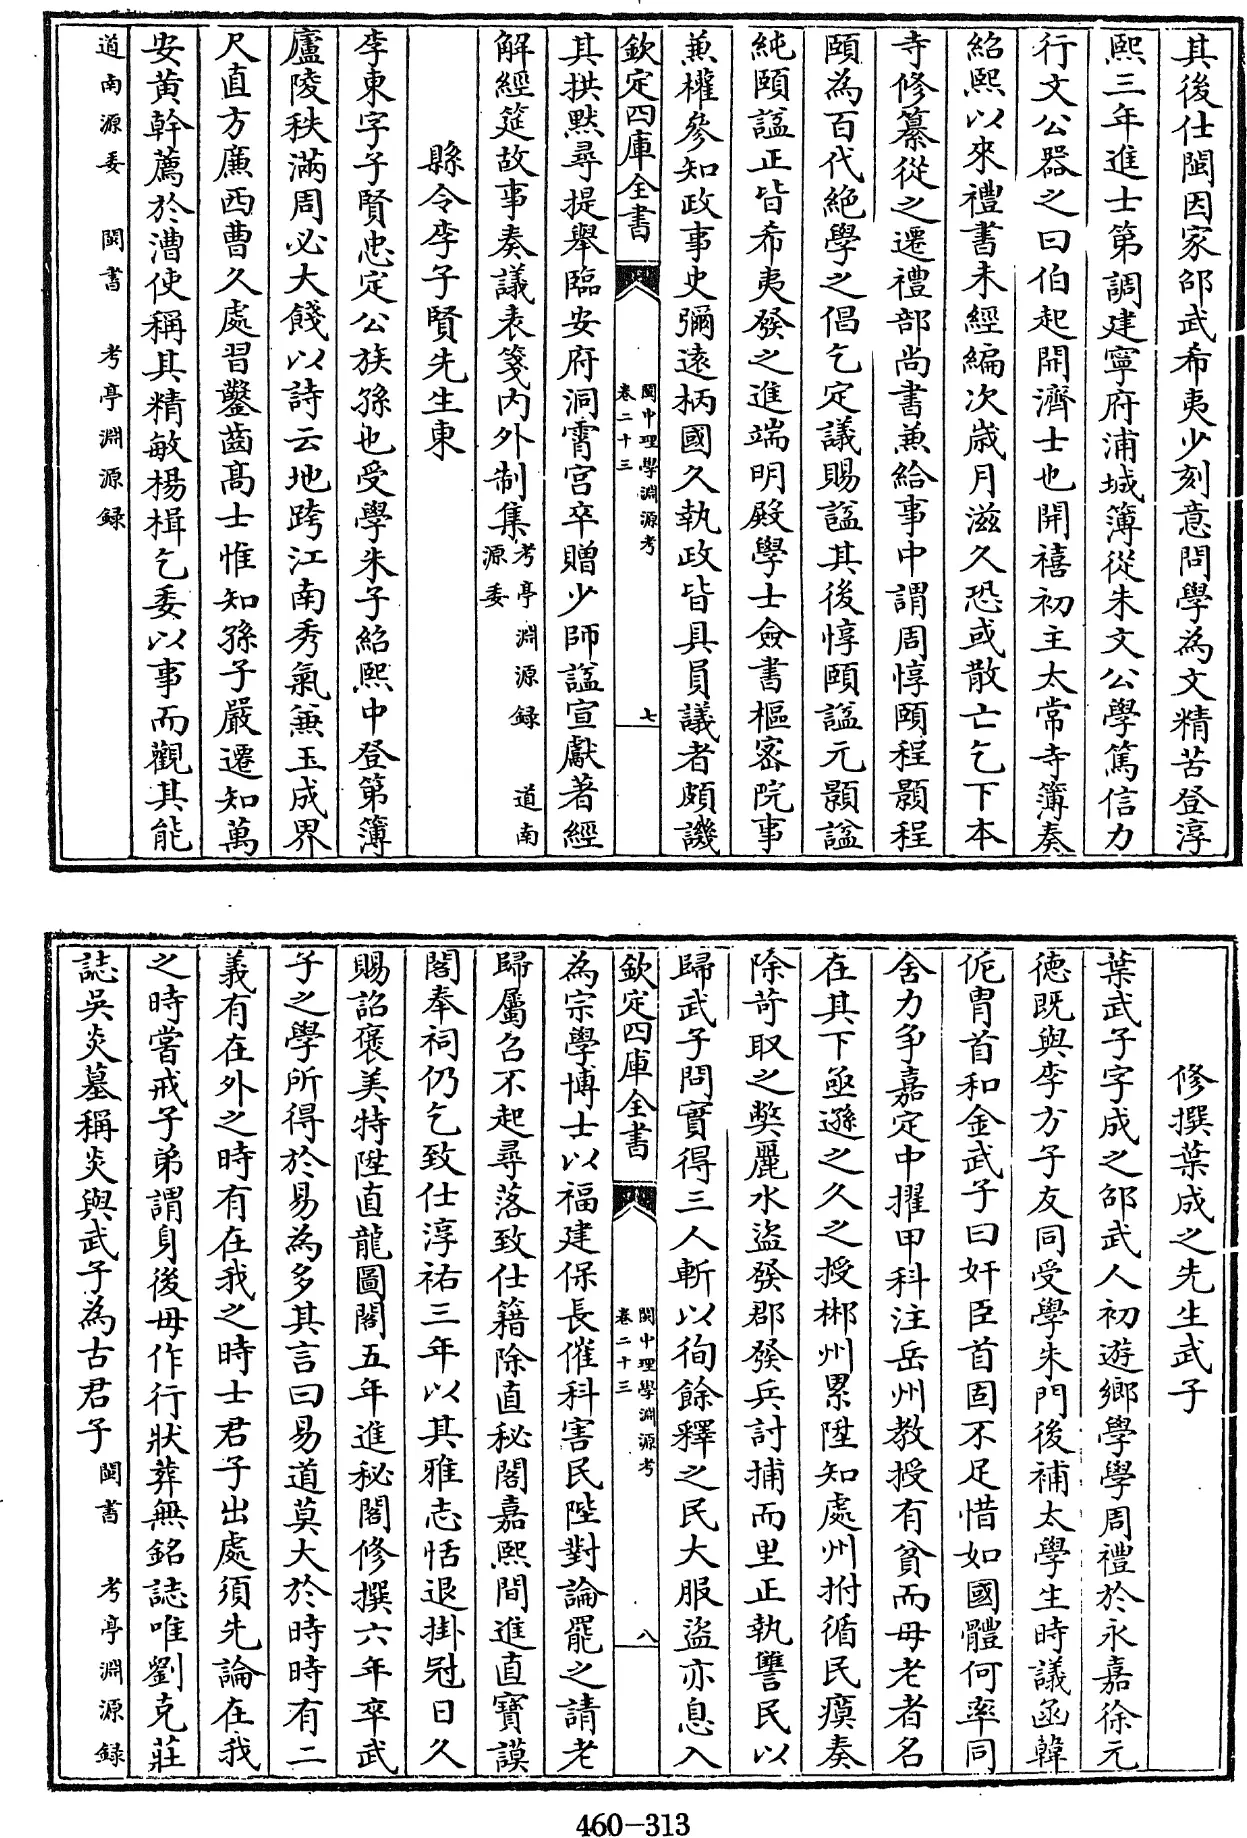 其後仕閩因家邵武希夷少刻意問學為文精苦登淳
熙三年進士第調建寧府浦城簿從朱文公學篤信力
行文公器之曰伯起開濟士也開禧初主太常寺簿奏
紹熙以來禮書未經編次歲月滋久恐或散亡乞下本
寺修纂從之遷禮部尚書兼給事中謂周惇頤程顥程
頤為百代絶學之倡乞定議賜諡其後惇頤諡元顥諡
純頤諡正皆希夷發之進端明殿學士僉書樞密院事
兼權參知政事史彌遠柄國久執政皆具員議者頗譏
欽定四庫全書
閩中理學淵源考
卷二十三
七
其拱默尋提舉臨安府洞霄宮卒贈少師諡宣獻著經
解經筵故事奏議表箋内外制集考亭淵源録 道南
源委
縣令李子賢先生東
李東字子賢忠定公族孫也受學朱子紹熙中登第簿
廬陵秩滿周必大餞以詩云地跨江南秀氣兼玉成界
尺直方廉西曹久處習鑿齒髙士惟知孫子嚴遷知萬
安黄幹薦於漕使稱其精敏楊楫乞委以事而觀其能
道南源委 閩書 考亭淵源録
修撰葉成之先生武子
葉武子字成之邵武人初遊鄉學學周禮於永嘉徐元
德既與李方子友同受學朱門後補太學生時議函韓
侂胄首和金武子曰奸臣首固不足惜如國體何率同
舍力爭嘉定中擢甲科注岳州教授有貧而母老者名
在其下亟遜之久之授郴州累陞知處州拊循民瘼奏
除苛取之弊麗水盜發郡發兵討捕而里正執讐民以
歸武子問實得三人斬以徇餘釋之民大服盜亦息入
欽定四庫全書
閩中理學淵源考
卷二十三
八
為宗學博士以福建保長催科害民陛對論罷之請老
歸屬召不起尋落致仕籍除直秘閣嘉熙間進直寶謨
閣奉祠仍乞致仕淳祐三年以其雅志恬退掛冠日久
賜詔褒美特陞直龍圖閣五年進秘閣修撰六年卒武
子之學所得於易為多其言曰易道莫大於時時有二
義有在外之時有在我之時士君子出處須先論在我
之時嘗戒子弟謂身後毋作行狀葬無銘誌唯劉克莊
誌吳炎墓稱炎與武子為古君子 閩書 考亭淵源録
460-313